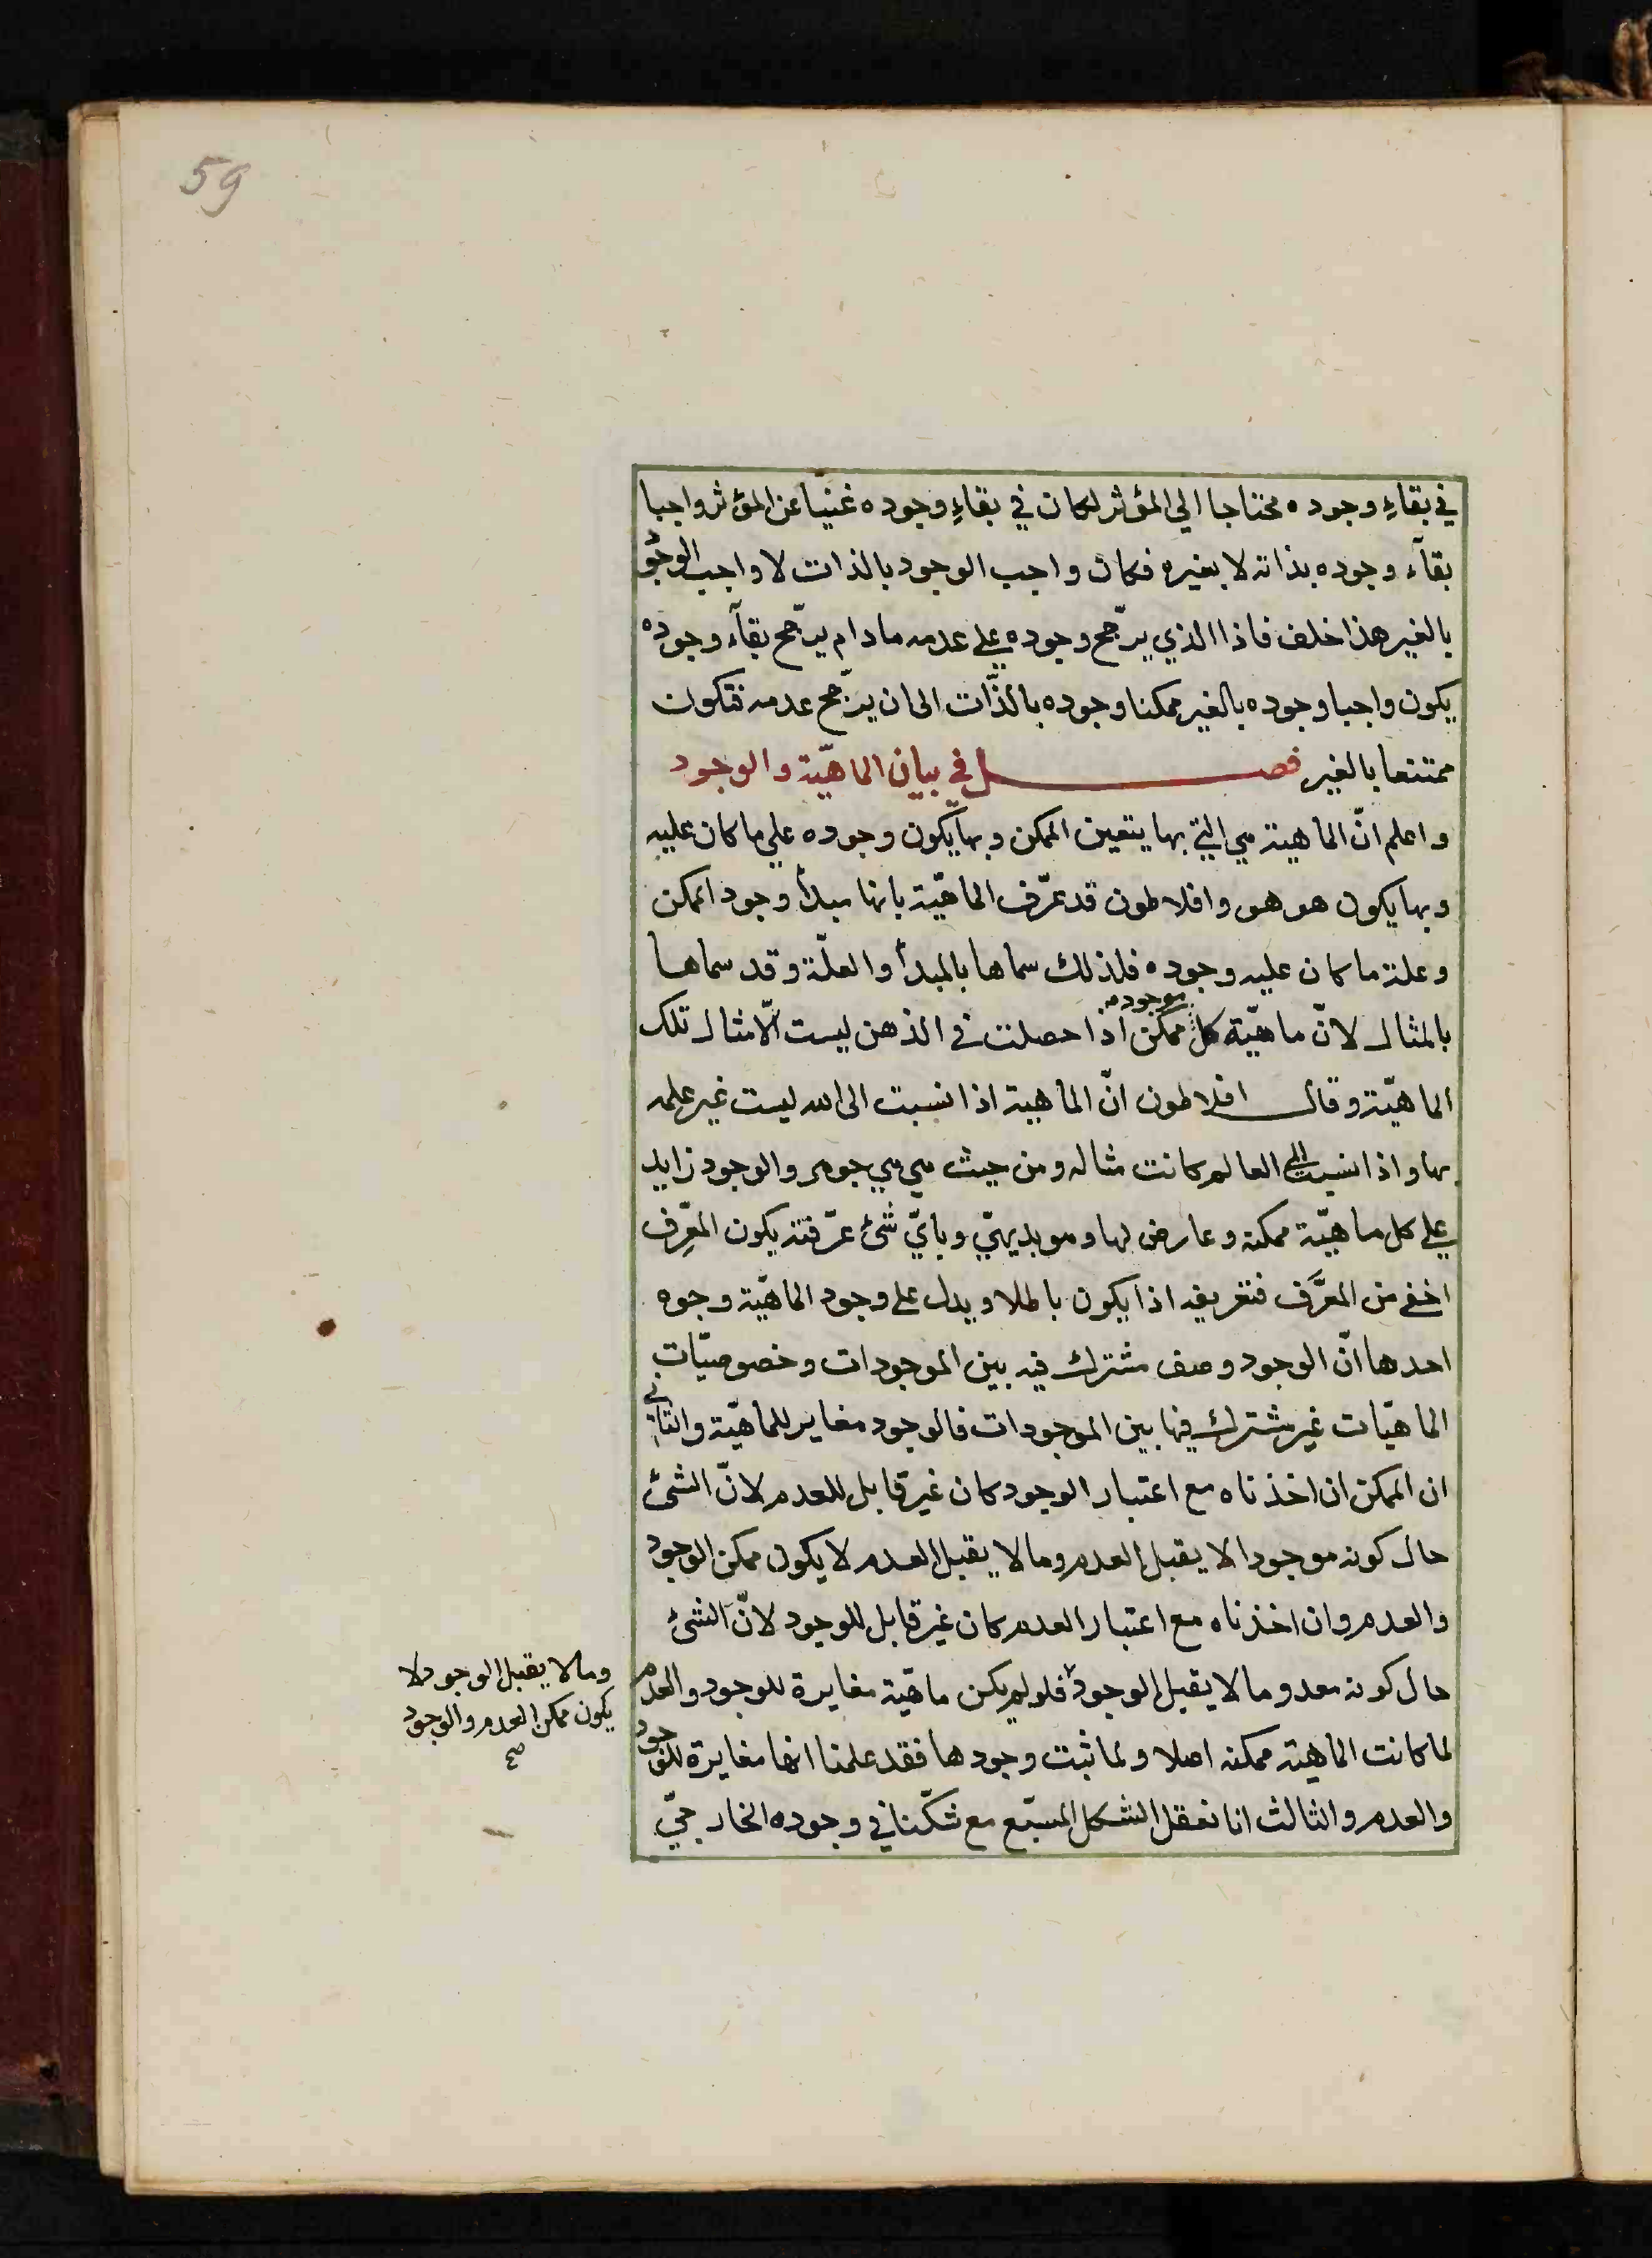 59
في بقاءِ وجوده محتاجا الي المؤثر لكان في بقاءِ وجوده غنيّا عن المؤثر واجبا
بقآء وجوده بذاته لا بغيره فكان واجب الوجود بالذات لا واجب الوجود
بالغير هذا خلف فاذا الذي يرجّح وجوده علي عدمه مادام يرجّح بقآء وجوده
يكون واجبا وجوده بالغير ممكنا وجوده بالذّات الى ان يرجّح عدمه فتكون
ممتنعا بالغير فصل في بيان الماهيّة والوجود
واعلم انّ الماهية هي التي بها يتعين الممكن وبها يكون وجوده علي ما كان عليه
وبها يكون هو هو وافلاطون قد عرّف الماهيّة بانها مبدأ وجود الممكن
وعلة ما كان عليه وجوده فلذلك سماها بالمبدأ والعلّة وقد سماها
بالمثال لانّ ماهيّة كل موجود ممكن اذا حصلت في الذهن ليست الّا مثال تلك
الماهيّة وقال افلاطون انّ الماهية اذا نسبت الى الله ليست غير علمه
بها واذا نسبت الي العالم كانت مثاله ومن حيث هي هي جوهر والوجود زايد
علي كل ماهيّة ممكنة وعارض لها وهو بديهيّ وبايّ شئ عرّفته يكون المعرِّف
اخفي من المعرَّف فتعريفه اذا يكون باطلا ويدل على وجود الماهيّة وجوه
احدها انّ الوجود وصف مشترك فيه بين الموجودات وخصوصيّات
الماهيّات غير مشترك فيها بين الموجودات فالوجود مغاير للماهيّة والثاني
ان الممكن ان اخذناه مع اعتبار الوجود كان غير قابل للعدم لانّ الشئ
حال كونه موجودا لا يقبل العدم وما لا يقبل العدم لا يكون ممكن الوجود
والعدم وان اخذناه مع اعتبار العدم كان غير قابل للوجود لانّ الشئ
حال كونه معدوما لا يقبل الوجود فلو لم يكن ماهيّة مغايرة للوجود والعدم
وما لا يقبل الوجود لا
يكون ممكن العدم والوجود
صح
لما كانت الماهية ممكنة اصلا ولما ثبت وجودها فقد علمنا انها مغايرة للوجود
والعدم والثالث انا نعقل الشكل المسبّع مع شكّنا في وجوده الخارجيّ